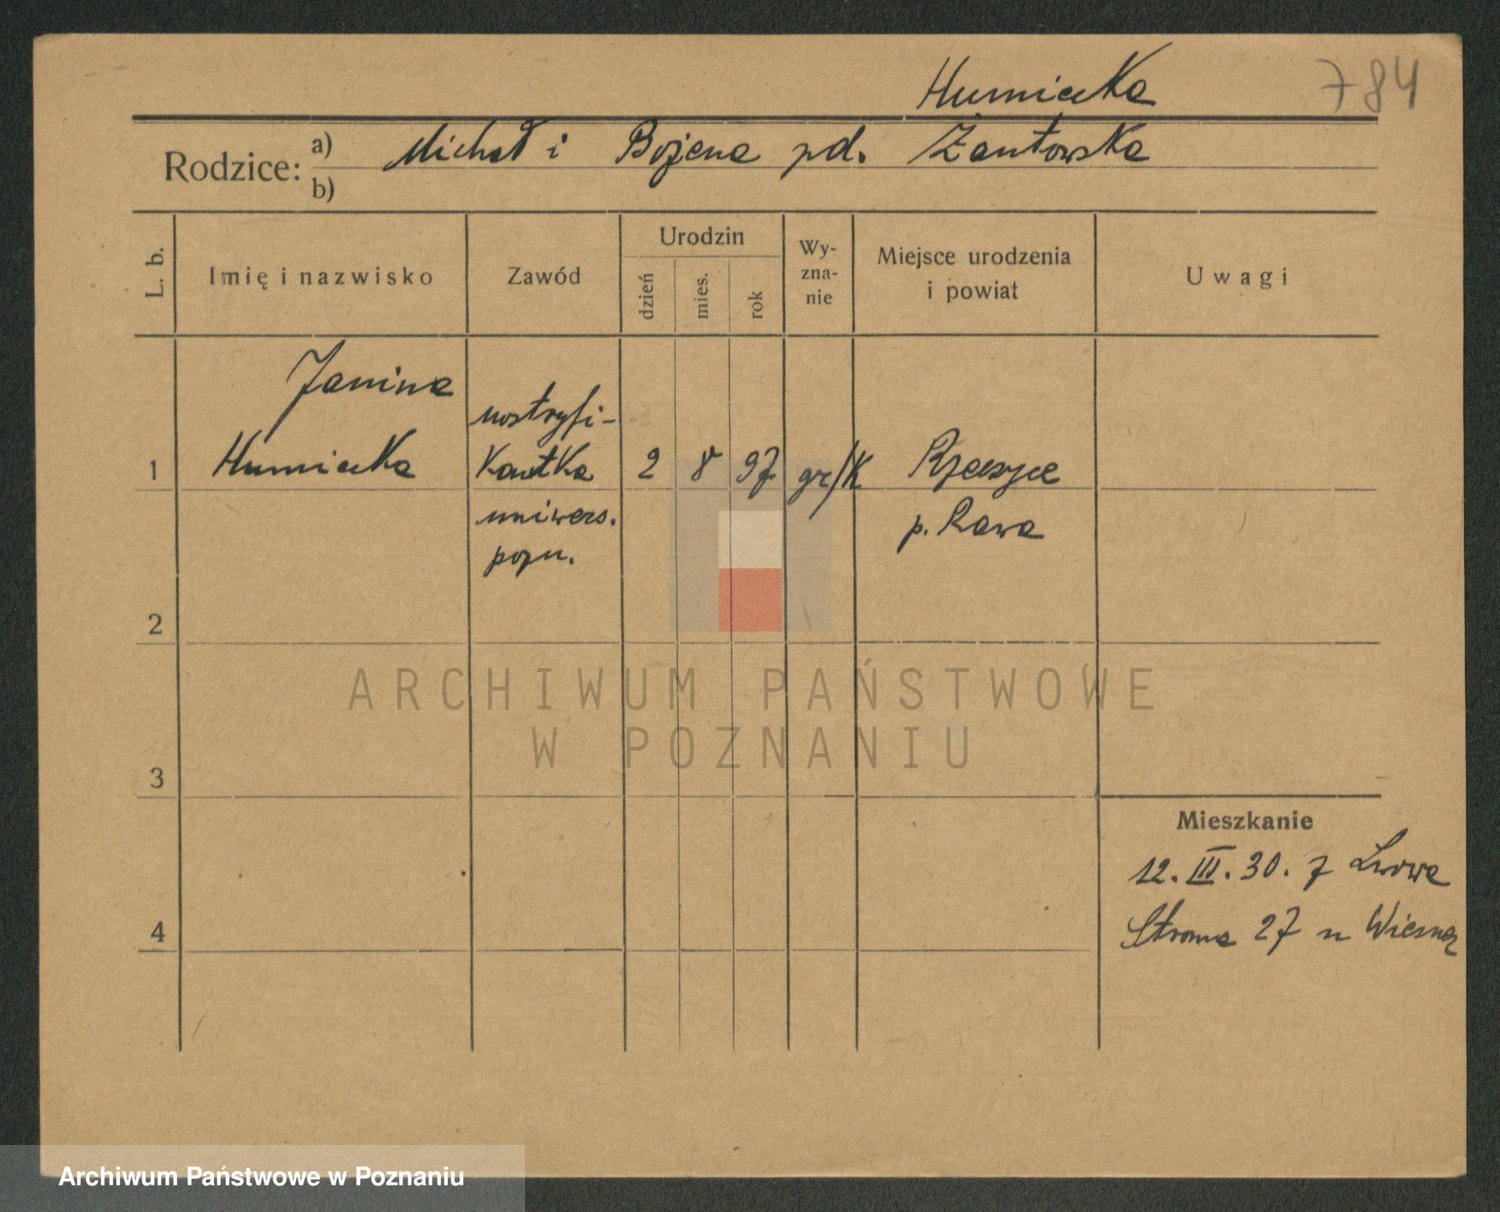 Humiecka
784
Rodzice: a) Michał i Bożena pd. Żautowska
b)
L. b.
Imię i nazwisko
Zawód
Urodzin
dzień
mies.
rok
Wy-
zna-
nie
Miejsce urodzenia
i powiat
Uwagi
1
Janina
Humiecka
nostryfi-
kantka
uniwers.
pozn.
2 8 97 gr/K
Rzeczyce
p. Rawa
2
3
4
Mieszkanie
12. III. 30. z Lwowa
Stroma 27 u
ARCHIWUM PAŃSTWOWE
W POZNANIU
Archiwum Państwowe w Poznaniu